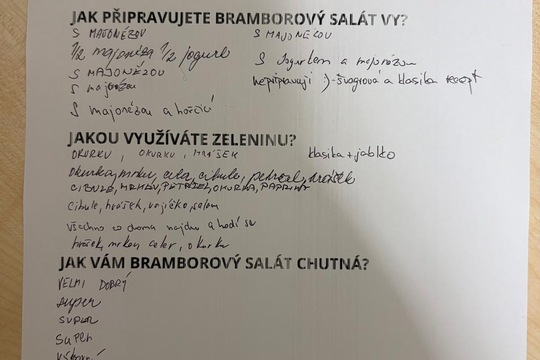 JAK PŘIPRAVUJETE BRAMBOROVÝ SALÁT VY?
S MAJONÉZOU
S MAJONÉZOU
1/2 majonéza 1/2 jogurt
S jogurtem a majonézou
S MAJONÉZOU
nepřipravuji :)-švagrová a klasika recept
S majonézou
S majonézou a hořčicí
JAKOU VYUŽÍVÁTE ZELENINU?
OKURKU, OKURKU, HRÁŠEK
klasika + jablko
okurka, mrkev, cibule, petržel, hrášek
CIBULE, MRKEV, PETRŽEL, OKURKA, PAPRIKY
cibule, hrášek, vajíčko, salám
všechno co doma najdu a hodí se
hrášek, mrkev, celer, okurka
JAK VÁM BRAMBOROVÝ SALÁT CHUTNÁ?
VELMI DOBRÝ
super
SUPER
SUPER